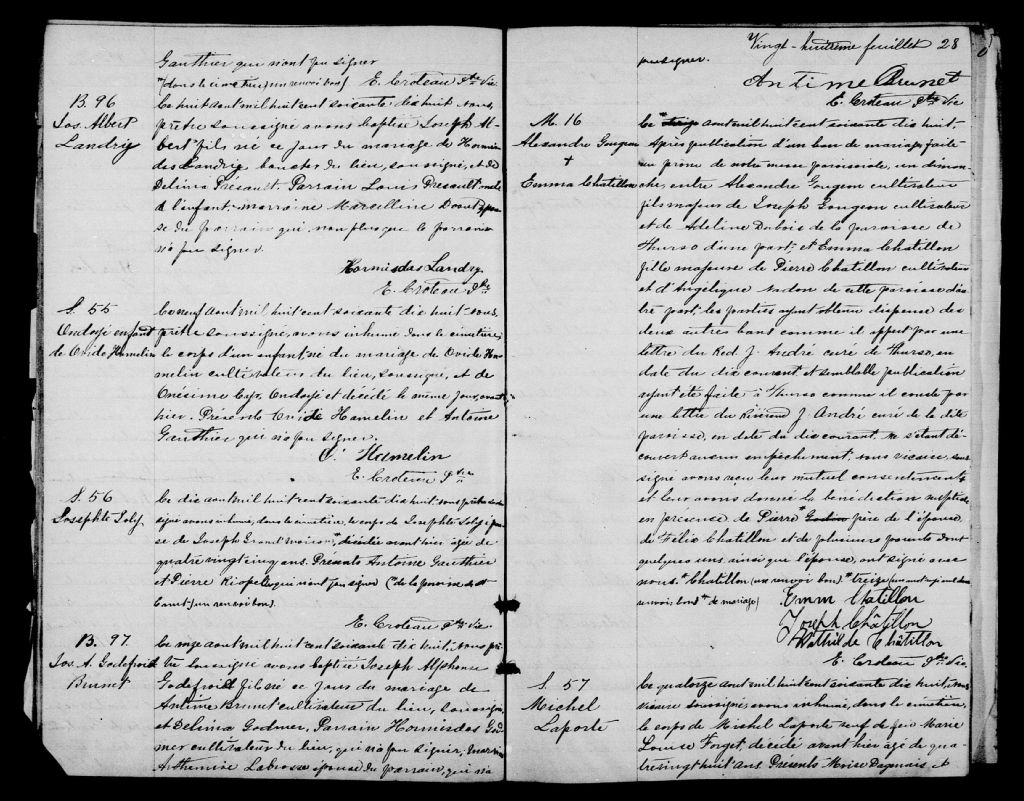 Gauthier qui n'ont pu signer
E. Croteau Ptre Vic.
B. 96
Jos. Albert
Landry
Le huit août mil huit cent soixante dix huit nous
prêtre soussigné avons baptisé Joseph Al-
bert fils né ce jour du mariage de Hormis-
das Landry, du lieu, soussigné, et de
Delima Presault. Parrain Louis Presault
à l'enfant; marraine Marcelline
se du parrain qui non plus que le parrain
n'a pu signer.
Hormisdas Landry
E. Croteau Ptre
S. 55
Ondoyé enfant
de Ovide Hamelin
Le neuf août mil huit cent soixante dix huit nous
prêtre soussigné, avons inhumé dans le cimetière
le corps d'un enfant né du mariage de Ovide Ha-
melin cultivateur du lieu, soussigné, et de
Onésime Cyr, Ondoyé et décédé le même jour, avant
hier. Présents Ovide Hamelin et Antoine
Gauthier qui n'a pu signer.
O. Hamelin
E. Croteau Ptre
S. 56
Josephte Soly
Le dix août mil huit cent soixante dix huit, nous prêtre sous-
signé avons inhumé, dans le cimetière, le corps de Josephte Soly épou-
se de Joseph Grand'maison, décédée avant hier âgée de
quatre vingt cinq ans. Présents Antoine Gauthier
et Pierre Riopel qui n'ont pu signer (de la paroisse de St
(un renvoi bon).
E. Croteau Ptre Vic.
B. 97
Jos. A. Godefroid
Brunet
Le onze août mil huit cent soixante dix huit, nous prê-
tre soussigné avons baptisé Joseph Alphonse
Godefroid fils né ce jour du mariage de
Antime Brunet cultivateur du lieu, soussigné,
et Delima Godmer, Parrain Hormisdas God-
mer cultivateur du lieu, qui n'a pu signer, marraine
Arthemise Labrosse épouse du parrain, qui n'a
Vingt-huitième feuillet 28
pu signer.
Antime Brunet
E. Croteau Ptre Vic
M. 16
Alexandre Gougeon
+
Emma Chatillon
Le août mil huit cent soixante dix huit,
Après publication d'un ban de mariage faite
au prône de notre messe paroissiale, un diman-
che, entre Alexandre Gougeon cultivateur
fils majeur de Joseph Gougeon cultivateur
et de Adeline Dubois de la paroisse de
Thurso d'une part; et Emma Chatillon
fille majeure de Pierre Chatillon cultivateur
et d'Angélique Nadon de cette paroisse d'au-
tre part; les parties ayant obtenu dispense des
deux autres bans comme il appert par une
lettre du Rvd. J. André curé de Thurso, en
date du dix courant et semblable publication
ayant été faite à Thurso comme il conste par
une lettre du Révérend J. André curé de la dite
paroisse, en date du dix courant. Ne s'étant dé-
couvert aucun empêchement, nous vicaire, sous-
signé avons reçu leur mutuel consentement
et leur avons donné la bénédiction nuptiale
en présence de Pierre père de l'épouse,
de Félix Chatillon et de plusieurs parents dont
quelques uns, ainsi que l'épouse, ont signé avec
nous. Chatillon (un renvoi bon) treize
renvoi bon) de mariage)
Emma Chatillon
Joseph Châtillon
Mathilde Châtillon
E. Croteau Ptre Vic.
S. 57
Michel
Laporte
Le quatorze août mil huit cent soixante dix huit, nous
vicaire soussigné, avons inhumé, dans le cimetière,
le corps de Michel Laporte veuf de feu Marie
Louise Forget, décédé avant hier âgé de qua-
tre vingt huit ans. Présents Moïse Dagenais et